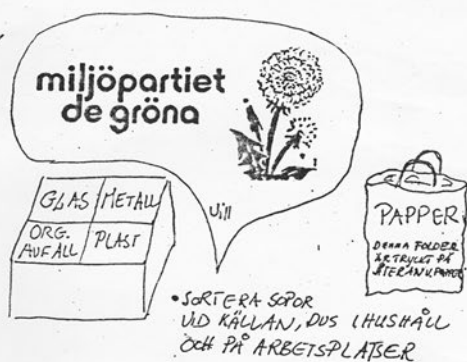 miljöpartiet
de gröna
vill
GLAS METALL
ORG.
AVFALL PLAST
PAPPER
DENNA FOLDER
ÄR TRYCKT PÅ
ÅTERANV. PAPPER
• SORTERA SOPOR
VID KÄLLAN, DVS I HUSHÅLL
OCH PÅ ARBETSPLATSER